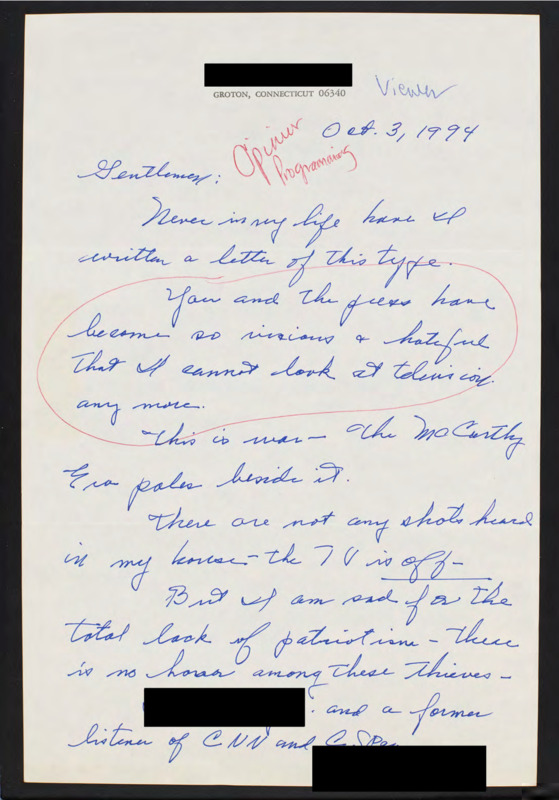 GROTON, CONNECTICUT 06340
Viewer
Oct. 3, 1994
Opinion
Programming
Gentlemen:
Never in my life have I
written a letter of this type.
You and the press have
become so vicious & hateful
that I cannot look at television
any more.
This is war - the McCarthy
Era pales beside it.
There are not any shots heard
in my house - the TV is off -
But I am sad for the
total lack of patriotism - there
is no honor among these thieves -
. and a former
listener of CNN and C-Span